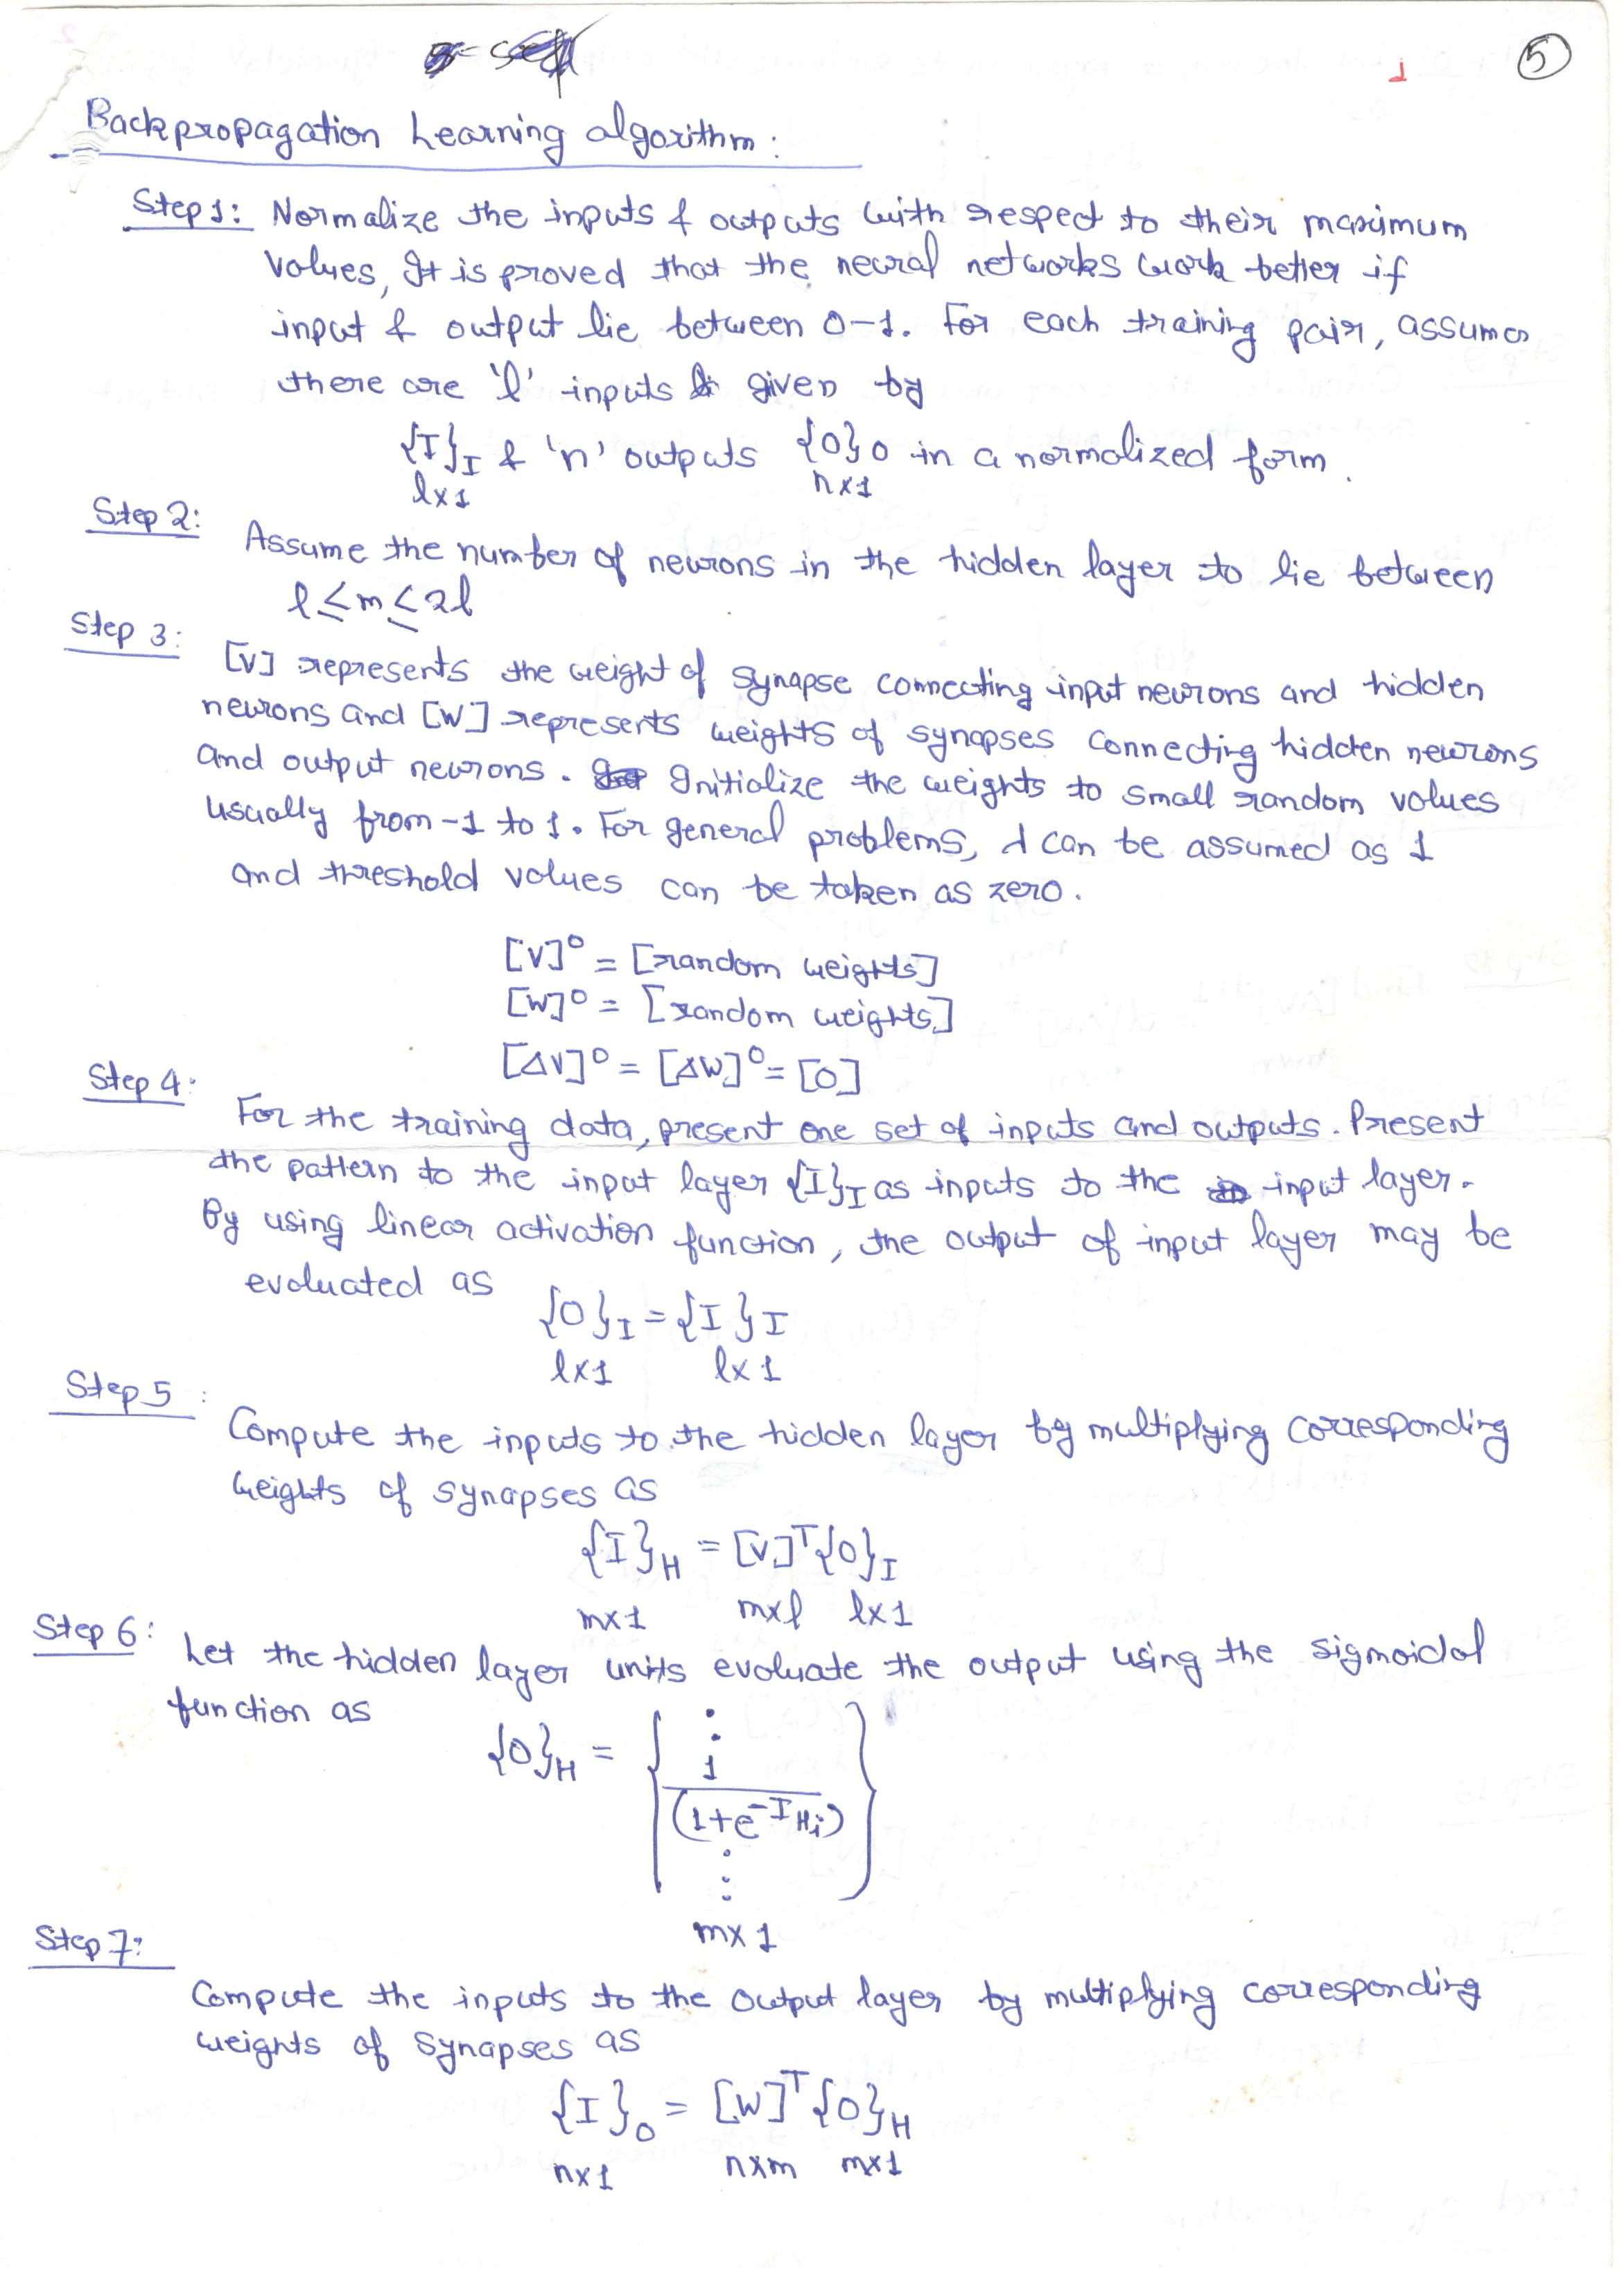 1
5
Backpropagation Learning algorithm:
Step 1: Normalize the inputs & outputs with respect to their maximum
values, It is proved that the neural networks work better if
input & output lie between 0-1. For each training pair, assume
there are 'l' inputs given by
{I}I & 'n' outputs {O}O in a normalized form.
l×1 n×1
Step 2:
Assume the number of neurons in the hidden layer to lie between
l ≤ m ≤ 2l
Step 3:
[V] represents the weight of synapse connecting input neurons and hidden
neurons and [W] represents weights of synapses connecting hidden neurons
and output neurons. Initialize the weights to small random values
usually from -1 to 1. For general problems, λ can be assumed as 1
and threshold values can be taken as zero.
[V]⁰ = [random weights]
[W]⁰ = [random weights]
[ΔV]⁰ = [ΔW]⁰ = [0]
Step 4:
For the training data, present one set of inputs and outputs. Present
the pattern to the input layer {I}I as inputs to the input layer.
By using linear activation function, the output of input layer may be
evaluated as
{O}I = {I}I
l×1 l×1
Step 5:
Compute the inputs to the hidden layer by multiplying corresponding
weights of synapses as
{I}H = [V]ᵀ{O}I
m×1 m×l l×1
Step 6:
Let the hidden layer units evaluate the output using the sigmoidal
function as
{O}H = { ⋮ 1/(1+e^-IHi) ⋮ }
m×1
Step 7:
Compute the inputs to the output layer by multiplying corresponding
weights of synapses as
{I}O = [W]ᵀ{O}H
n×1 n×m m×1